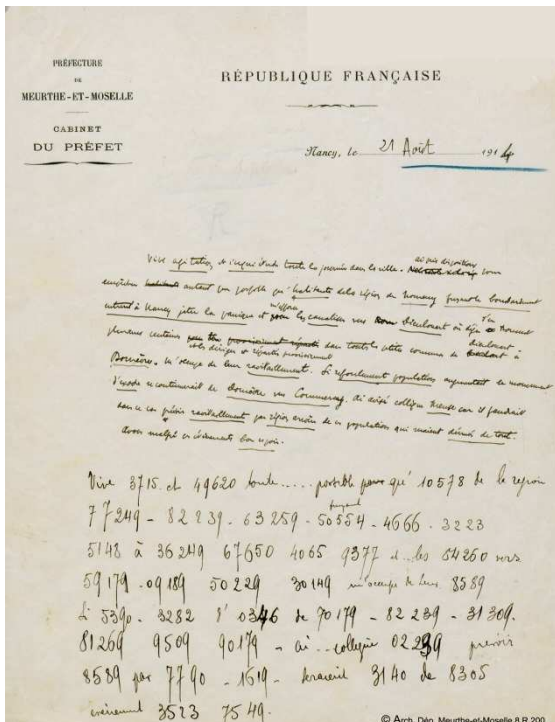 PRÉFECTURE
DE
MEURTHE-ET-MOSELLE
CABINET
DU PRÉFET
RÉPUBLIQUE FRANÇAISE
Nancy, le 21 Août 1914
Vive agitation et inquiétude toute la journée dans la ville. ai pris dispositions pour
empêcher autant que possible que habitants de la région de Nomeny fuyant bombardement
à Nancy jeter la panique et les canaliser vers Dieulouard où déjà s'en trouvent
plusieurs centaines dans toutes petites communes de Dieulouard à
et les diriger et répartir provisoirement
Domèvre. m'occupe de leur ravitaillement. Si refoulement population augmentait le mouvement
d'exode se continuerait de Domèvre vers Commercy. Ai avisé collègue Meuse car il faudrait
dans ce cas prévoir ravitaillement par région arrière de ces populations qui seraient dénué de tout.
avons malgré ces événements bon espoir.
Vive 3715 et 49620 toute ..... possible pour qu' 10578 de la région
77249 - 82839 - 63259 - 50554 - 4666 - 3223
5148 à 36249 67650 4065 9377 et les 54260 vers
59179 - 09189 50229 30149 m'occupe de leur 8589
Si 5390 - 3282 l' 0346 de 70179 - 82239 - 31309.
81269 9509 90179 - ai .. collègue 02239 prévoir
8589 par 7790 - 1619 - seraient 3140 de 8305
événement 3523 7549.
© Arch. Dép. Meurthe-et-Moselle 8 R 200